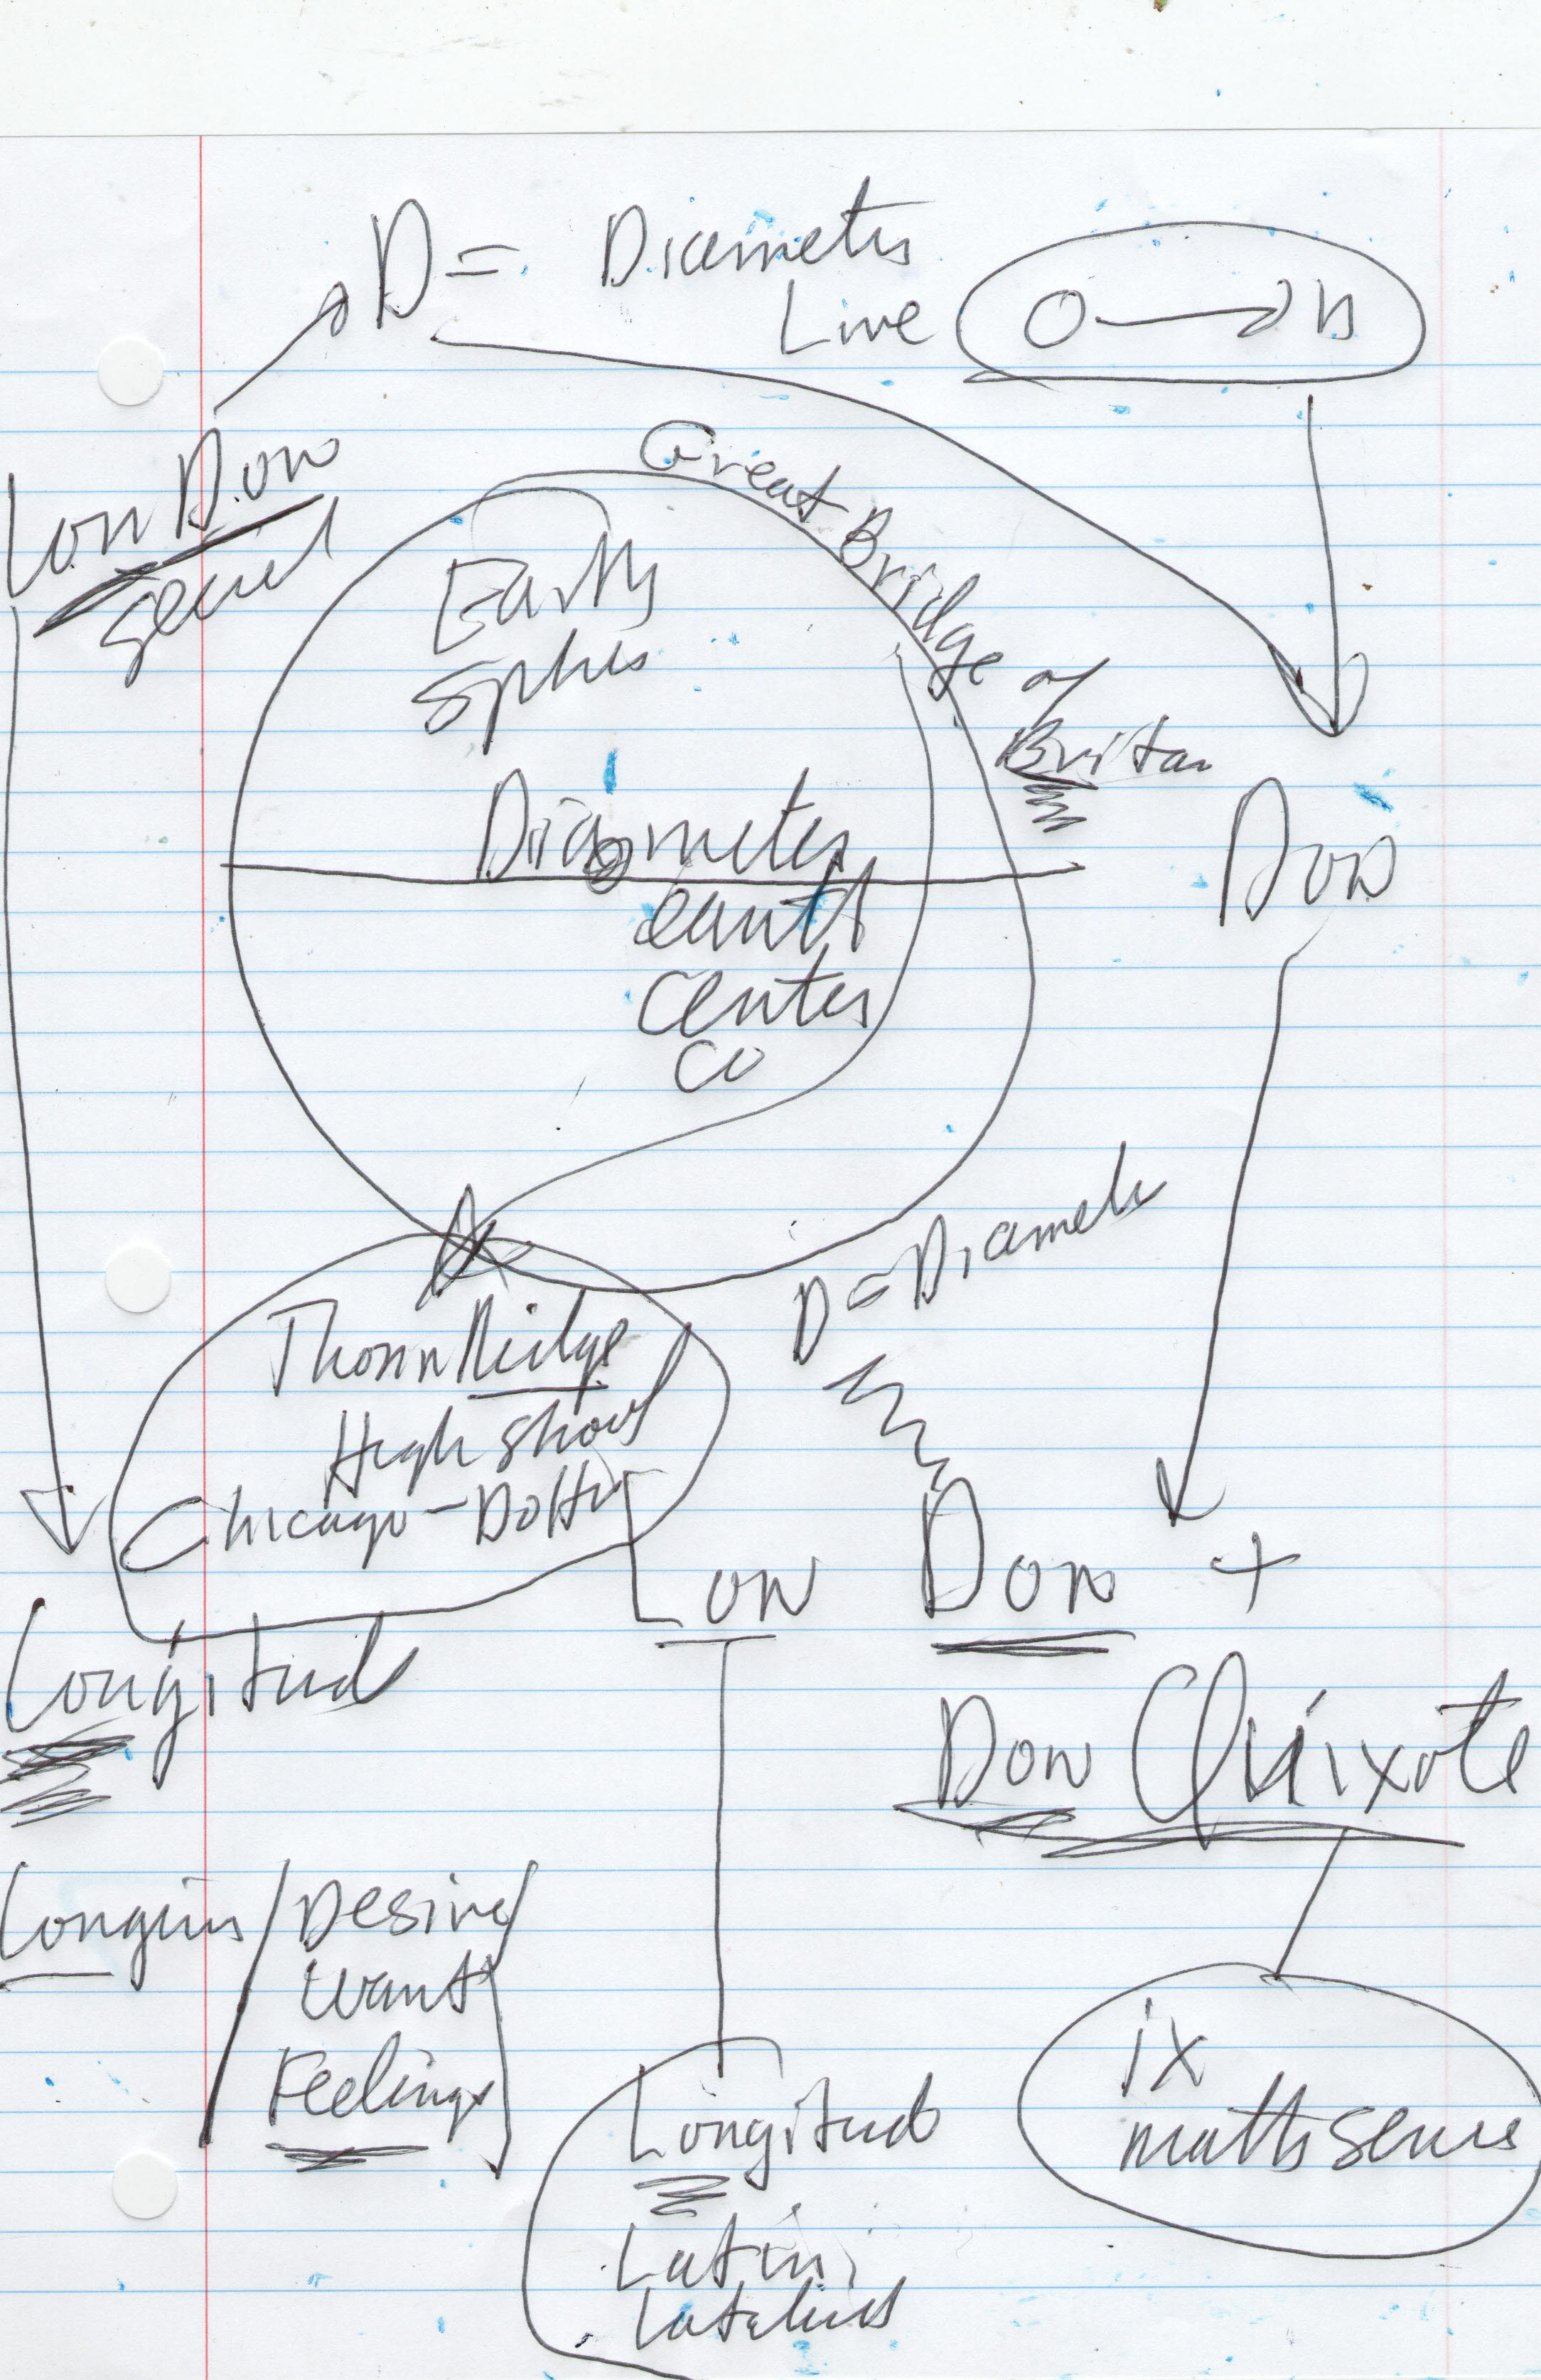 D = Diameter
Line O → n
LonDon
Secret
Great Bridge of
Britan
Earth
Sphere
Diameter
earth
center
Don
D = Diamete
ThornRidge
High Shool
Chicago -
Lon Don +
Longitud
Don Quixote
Longin / Desire /
want
Feelings
ix
math sense
Longitud
Latin,